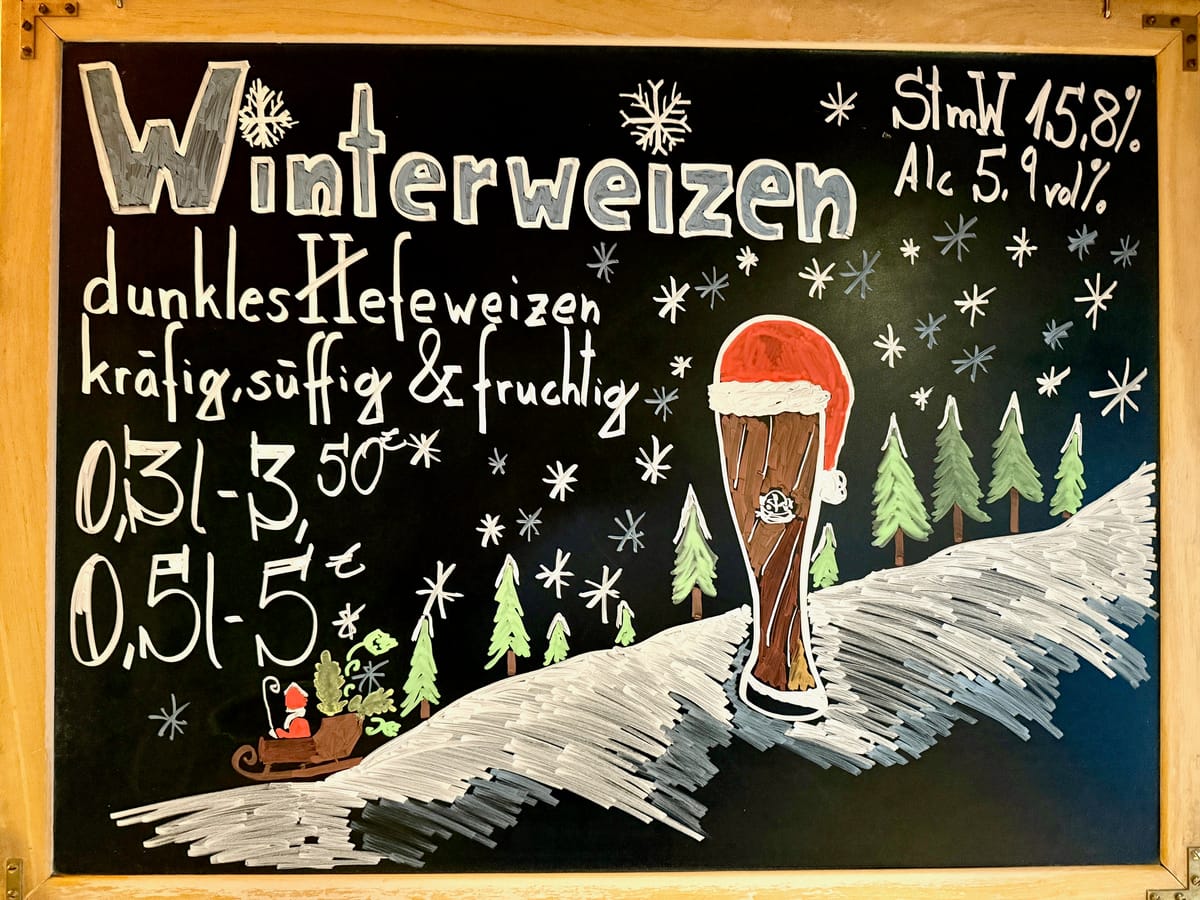 Winterweizen
StmW 15,8%
Alc 5.9 vol%
dunkles Hefeweizen
kräfig, süffig & fruchtig
0,3l - 3,50€
0,5l - 5€